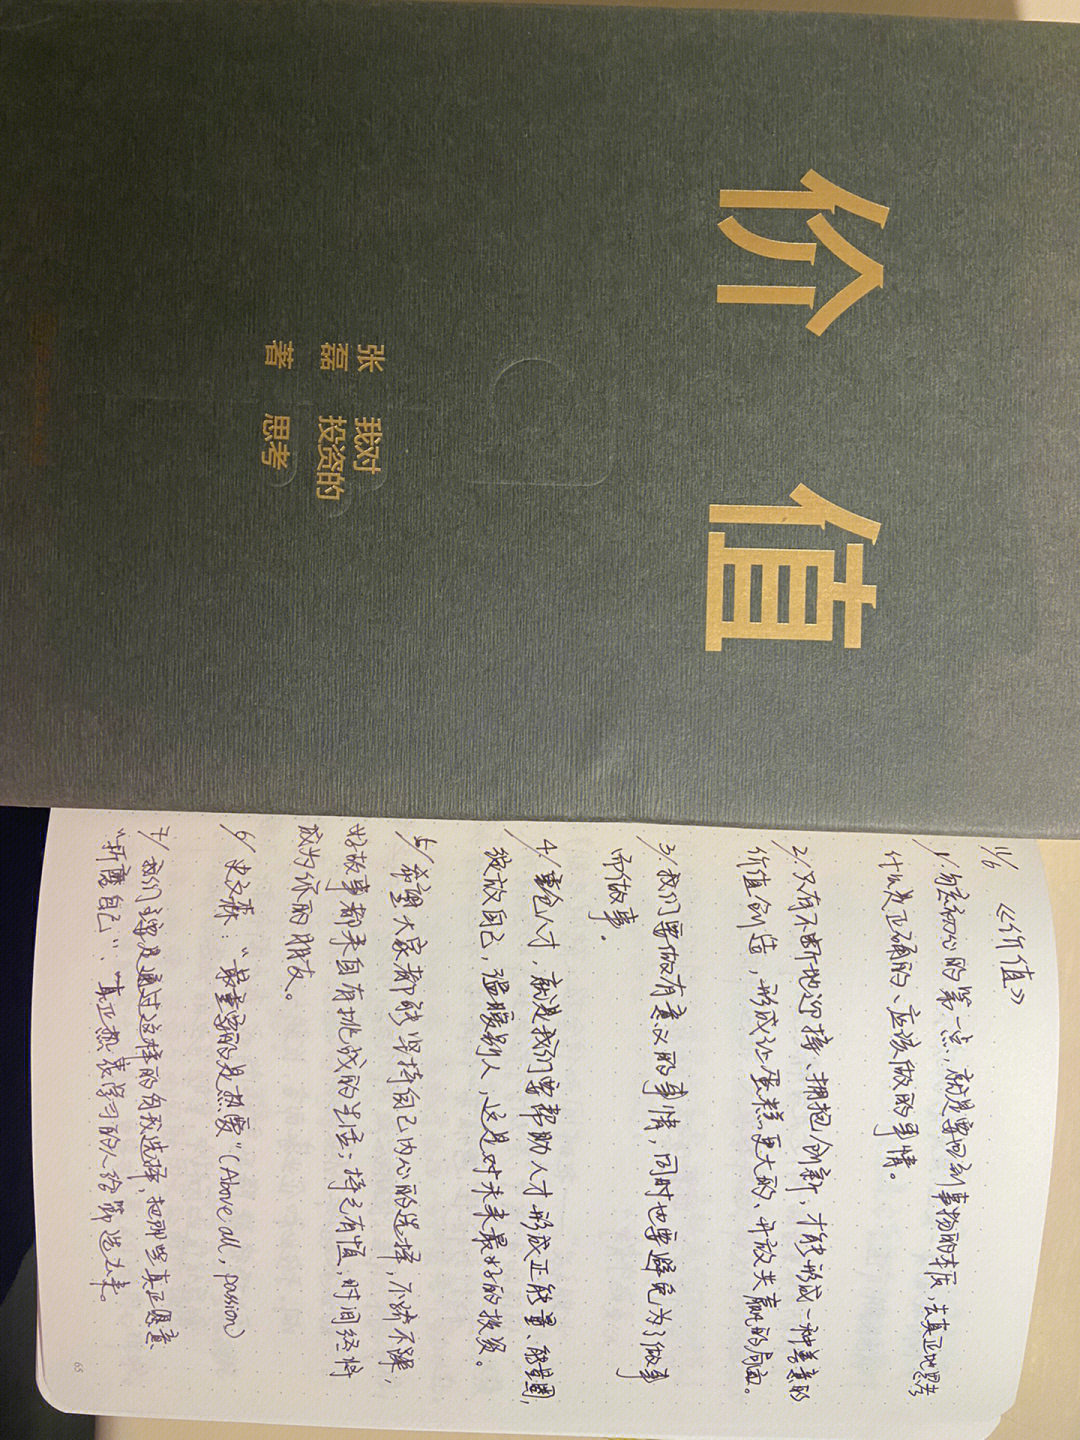 价值
张磊 著
我对
投资的
思考
11/6 《价值》
1/ 勿忘初心的第一点，就是要回到事物的本质，去真正地思考
什么是正确的、应该做的事情。
2/ 只有不断地迎接、拥抱创新，才能形成一种善意的
价值创造，形成让蛋糕更大的、开放共赢的局面。
3/ 我们要做有意义的事情，同时也要避免为了做事
而做事。
4/ 重仓人才，就是我们要帮助人才形成正能量、能量圈，
绽放自己，温暖别人，这是对未来最好的投资。
5/ 希望大家都能坚持自己内心的选择，不骄不躁，
好故事都来自有挑战的生活；持之有恒，时间终将
成为你的朋友。
6/ 史文森：“最重要的是热爱”（Above all, passion）
7/ 我们主要是通过这样的自我选择，把那些真正愿意
“折磨自己”、真正热衷学习的人给筛选出来。
65